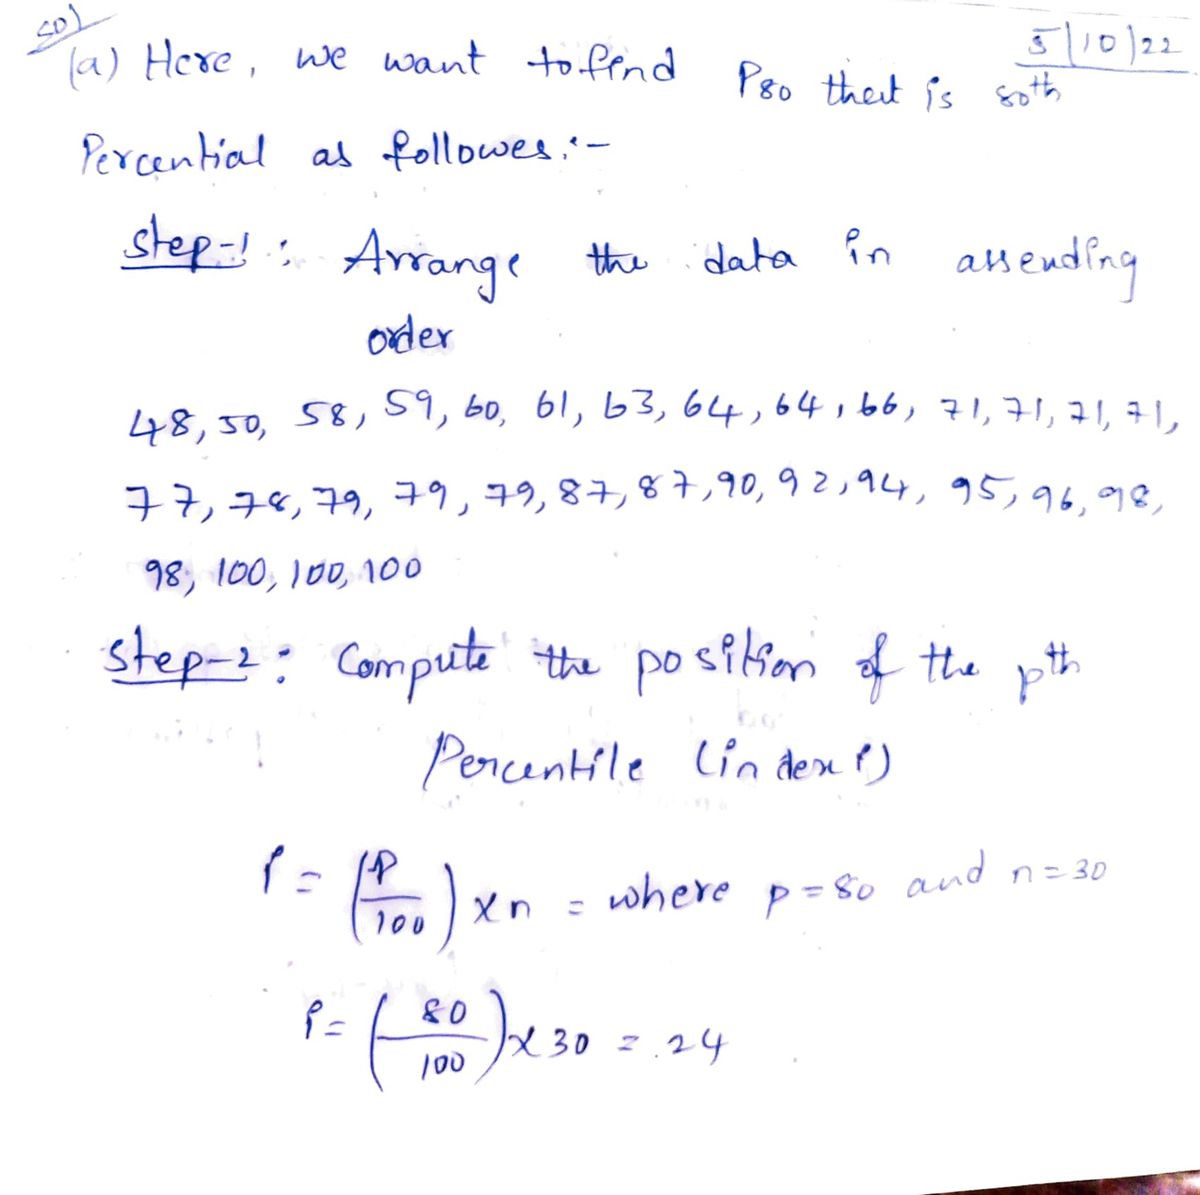 sol
5/10/22
(a) Here, we want to find P80 that is 80th
Percential as followes:-
Step-1: Arrange the data in assending
order
48, 50, 58, 59, 60, 61, 63, 64, 64, 66, 71, 71, 71, 71,
77, 78, 79, 79, 79, 87, 87, 90, 92, 94, 95, 96, 98,
98, 100, 100, 100
Step-2: Compute the position of the pth
Percentile (index i)
i = (P/100) x n = where p = 80 and n = 30
i = (80/100) x 30 = 24